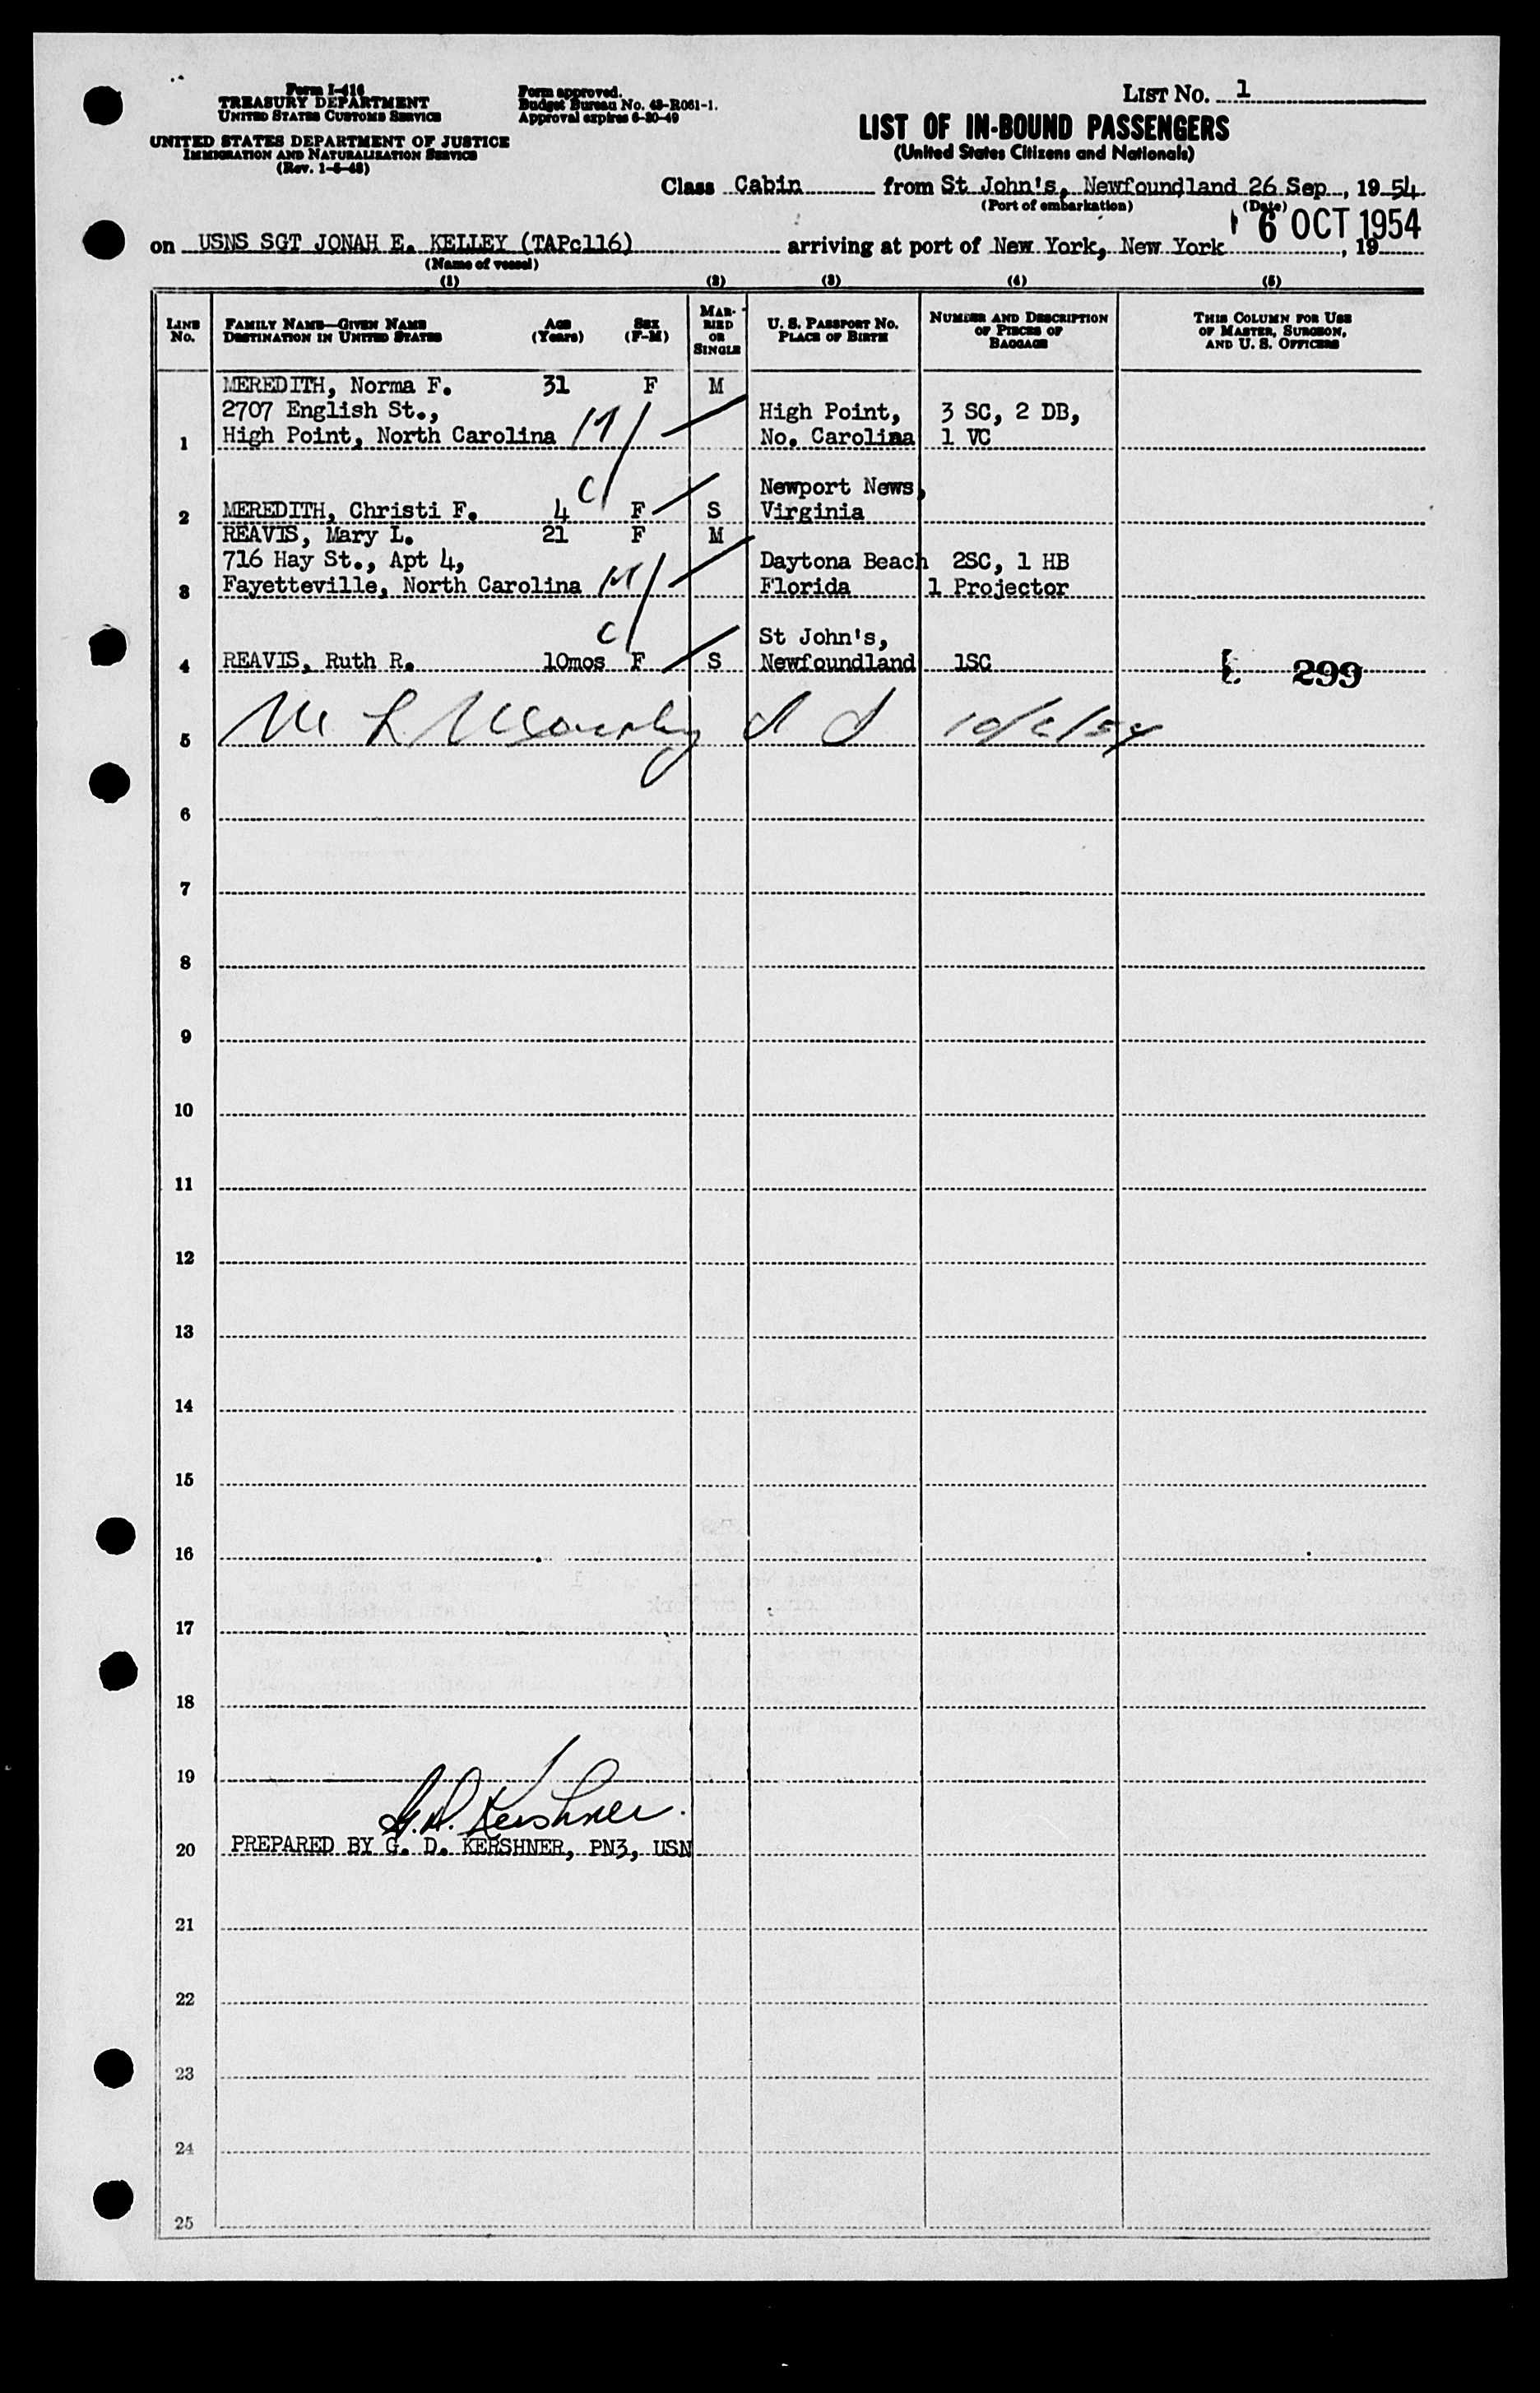 Form I-416
TREASURY DEPARTMENT
UNITED STATES CUSTOMS SERVICE
UNITED STATES DEPARTMENT OF JUSTICE
IMMIGRATION AND NATURALIZATION SERVICE
(Rev. 1-5-48)
Form approved.
Budget Bureau No. 43-R061-1.
Approval expires 6-30-49
LIST No. 1
LIST OF IN-BOUND PASSENGERS
(United States Citizens and Nationals)
Class Cabin from St John's, Newfoundland 26 Sep, 19 54
(Port of embarkation) (Date)
6 OCT 1954
on USNS SGT JONAH E. KELLEY (TAPc116) arriving at port of New York, New York, 19
(Name of vessel)
(1) (2) (3) (4) (5)
LINE No.
FAMILY NAME—GIVEN NAME
DESTINATION IN UNITED STATES
AGE (Years)
SEX (F-M)
MARRIED OR SINGLE
U. S. PASSPORT NO.
PLACE OF BIRTH
NUMBER AND DESCRIPTION OF PIECES OF BAGGAGE
THIS COLUMN FOR USE OF MASTER, SURGEON, AND U. S. OFFICERS
MEREDITH, Norma F. 31 F M
2707 English St., High Point, 3 SC, 2 DB,
1 High Point, North Carolina M No. Carolina 1 VC
C Newport News,
2 MEREDITH, Christi F. 4 F S Virginia
REAVIS, Mary L. 21 F M
716 Hay St., Apt 4, Daytona Beach 2SC, 1 HB
3 Fayetteville, North Carolina M Florida 1 Projector
C St John's,
4 REAVIS, Ruth R. 10mos F S Newfoundland 1SC 299
5 10/6/54
6
7
8
9
10
11
12
13
14
15
16
17
18
19
G. D. Kershner
20 PREPARED BY G. D. KERSHNER, PN3, USN
21
22
23
24
25